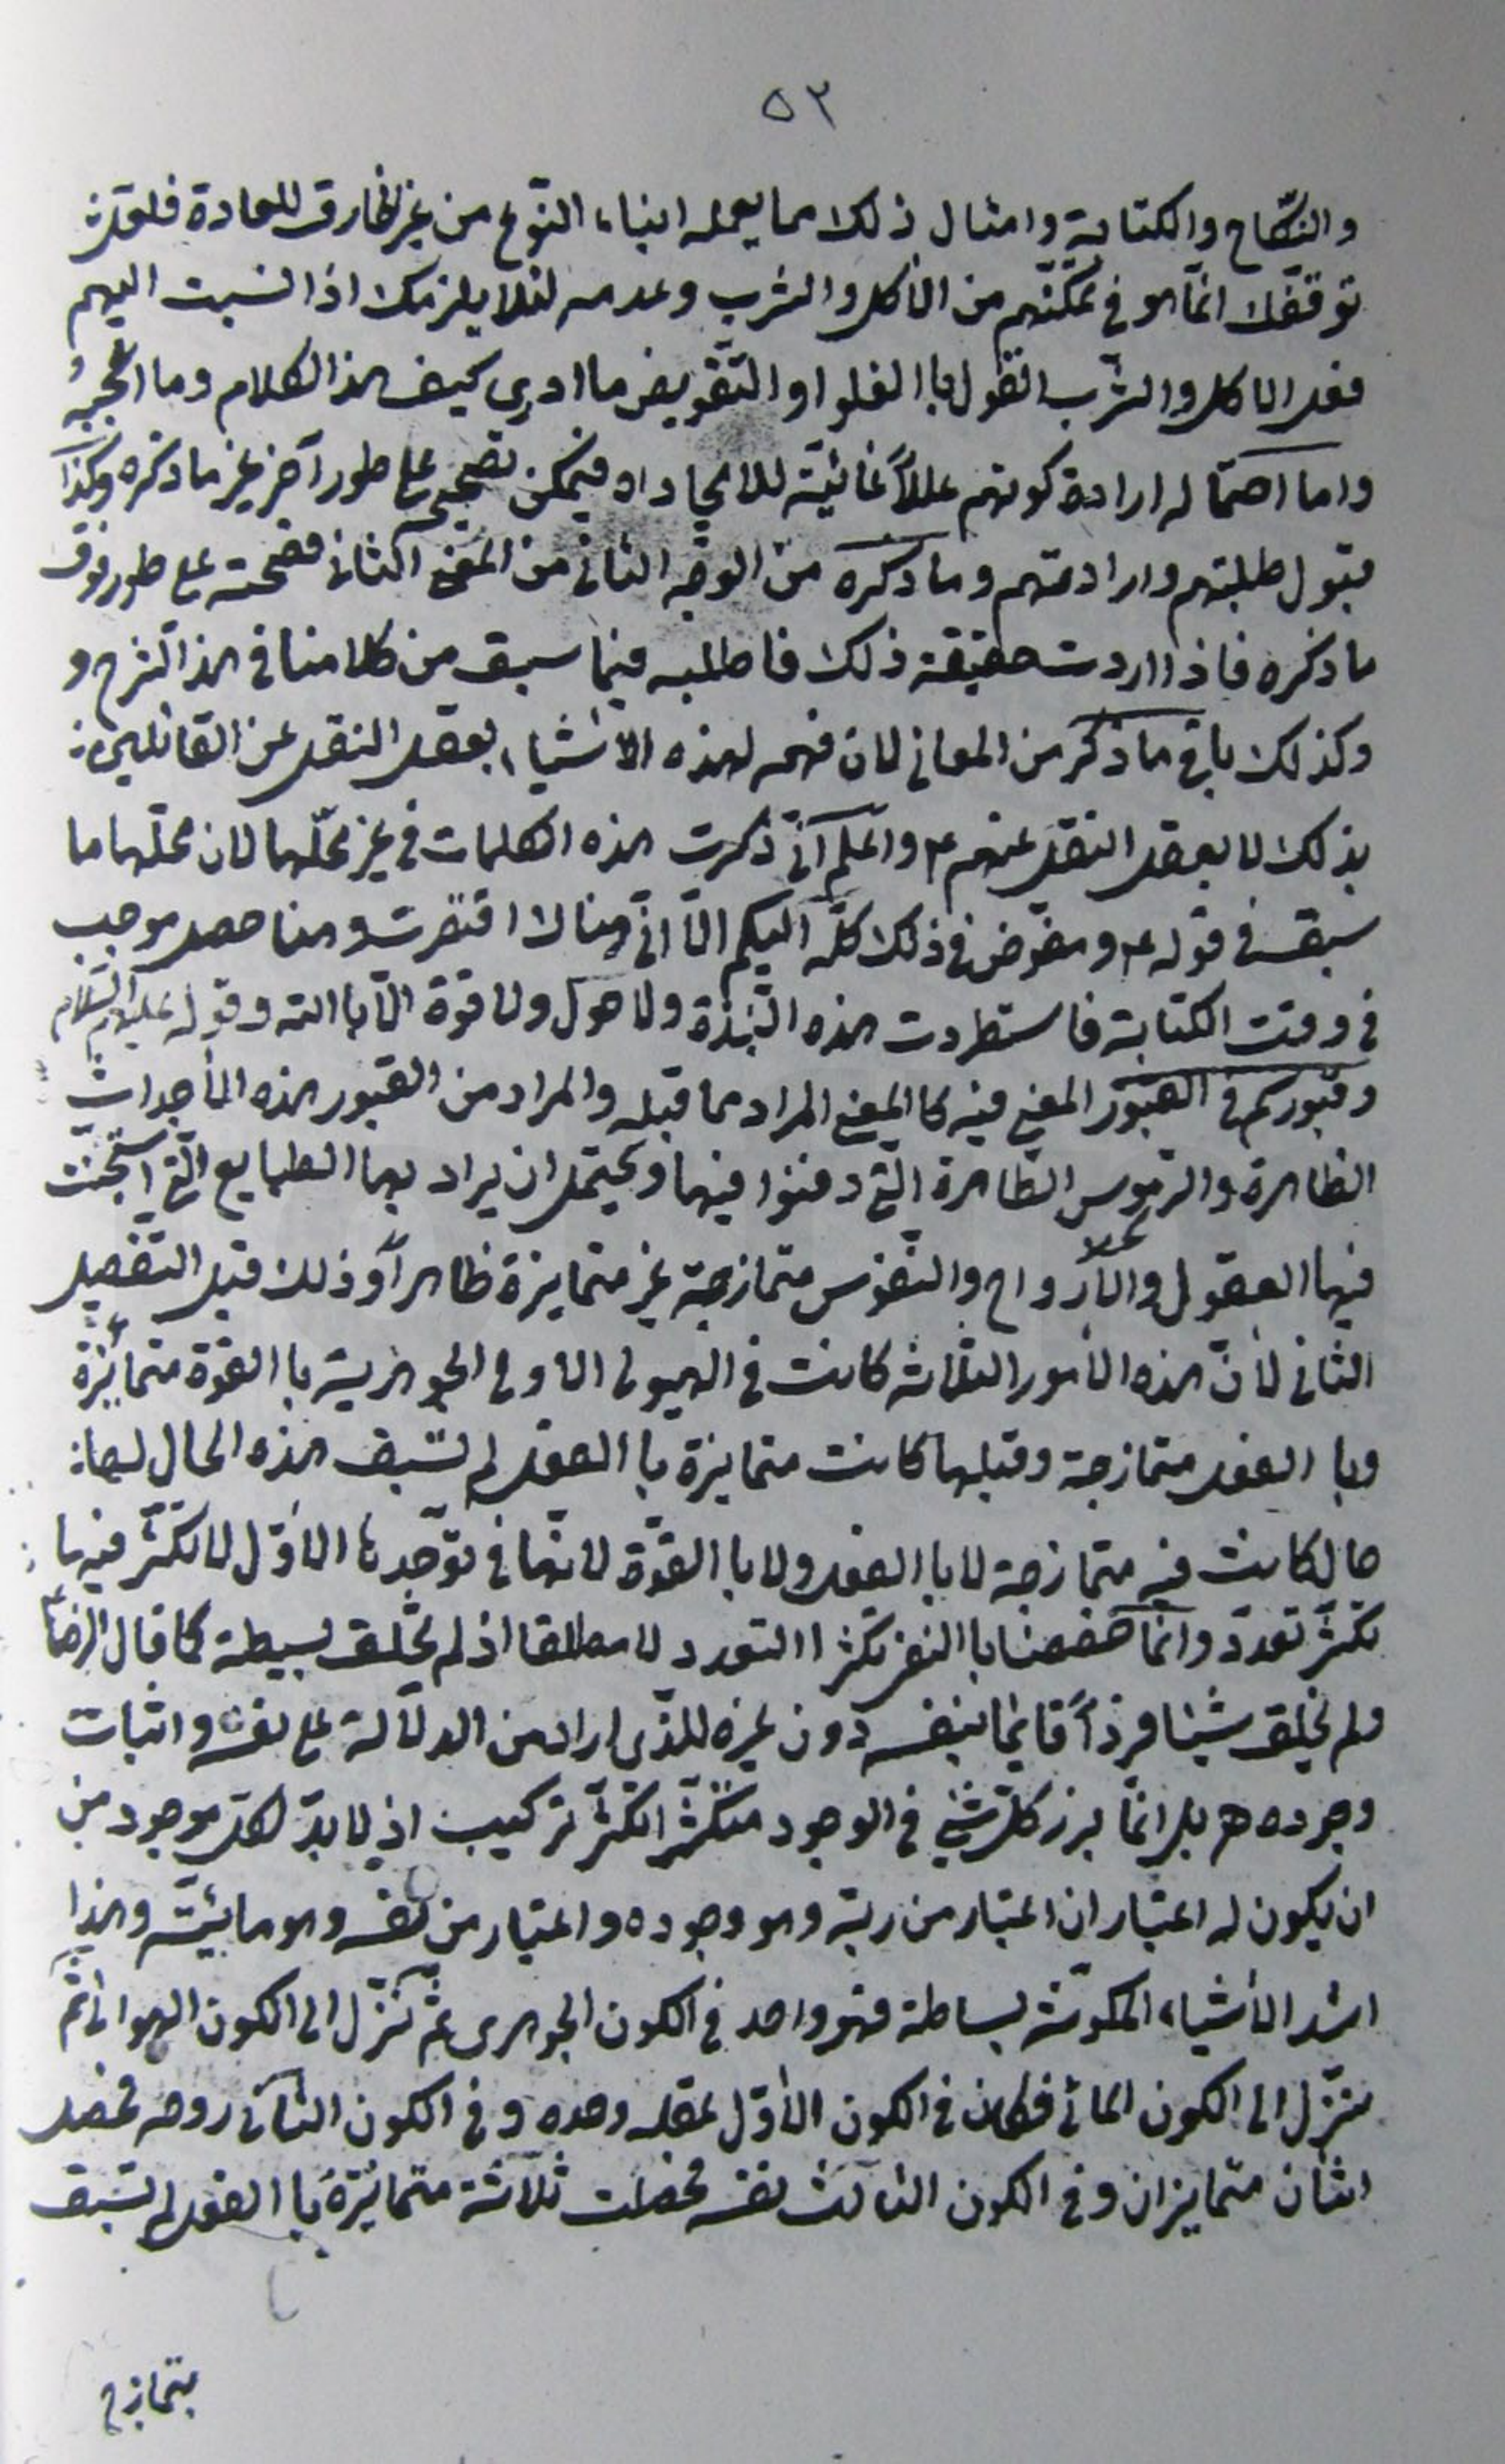 ٥٣
والنكاح والكتابة وامثال ذلك مما يعمله ابناء النوع من غير الخارق للعادة فلعل
توقفك انما هو في تمكنهم من الأكل والشرب وعدمه لئلا يلزمك اذا نسبت اليهم
فعل الاكل والشرب القول باالغلو او التفويض ما ادري كيف هذا الكلام وما اعجبه
واما احتماله ارادة كونهم عللاً غائيّة للايجاد اه فيمكن تصحيحه على طور آخر غير ما ذكره وكذا
قبول طلبتهم وارادتهم وما ذكره من الوجه الثاني من المعنى الثاني فصحته على طور فوق
ما ذكره فاذا اردت حقيقة ذلك فاطلبه فيما سبق من كلامنا في هذا الشرح و
وكذلك باقي ما ذكر من المعاني لان فهمه لهذه الأشياء بعقل النقل عن القائلين
بذلك لا بعقل النقل عنهم ع واعلم اني ذكرت هذه الكلمات في غير محلّها لان محلّها ما
سبق في قوله ع ومفوّض في ذلك كلّه اليكم الّا انّي هناك اقتصرت وهنا حصل موجب
في وقت الكتابة فاستطردت هذه النّبذة ولا حول ولا قوة الّا باالله وقوله عليهم السّلام
وقبوركم في القبور المعنى فيه كاالمعنى المراد مما قبله والمراد من القبور هذه الأجداث
الظاهرة والرموس الظاهرة الّتي دفنوا فيها ويحتمل ان يراد بها الطبايع الّتي استجنت
فيها العقول والأرواح والنّفوس متمازجة غير متمايزة ظاهراً وذلك قبل التّفصيل
الثاني لأنّ هذه الأمور الثلاثه كانت في الهيولى الاولى الجوهرية باالقوّة متمايزة
وباالفعل متمازجة وقبلها كانت متمايزة باالفعل لم تسبق هذه الحال لها
حال كانت فيه متمازجة لا باالفعل ولا باالقوّة لانها في توحّدها الأوّل لا تكثّر فيها
تكثّر تعدّد وانّما خصصنا باالنفي تكثر التعدد لا مطلقا اذ لم يخلق بسيطة كما قال الرضا ع
ولم يخلق شيئا فرداً قائما بنفسه دون غيره للّذي اراد من الدلالة على نفسه واثبات
وجوده ه بل انّما برز كلّ شيء في الوجود متكثّرا تكثّر تركيب اذ لا بدّ لكل موجود من
ان يكون له اعتباران اعتبار من ربّه وهو وجوده واعتبار من نفسه وهو ماهيّته وهذا
اشد الأشياء المكونة بساطة فهو واحد في الكون الجوهري ثمّ تنزّل الى الكون الهوائي ثمّ
تنزّل الى الكون المائي فكان في الكون الأوّل عقله وحده وفي الكون الثاني روحه فحصل
اثنان متمايزان وفي الكون الثالث نفسه فحصلت ثلاثة متمائزة باالفعل لم تسبق
بتمازج